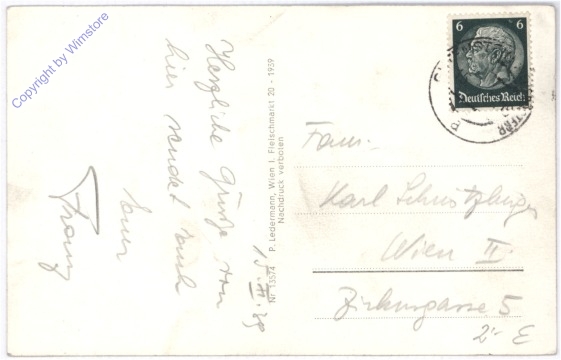 Herzliche Grüße von
hier sendet Euch
Euer
Franz
P. Ledermann, Wien I. Fleischmarkt 20 - 1939
Nachdruck verboten
Nr 13574
6 6
Deutsches Reich
Fam.
Karl
Wien II.
Zirkusgasse 5
2 E
Copyright by Wimstore